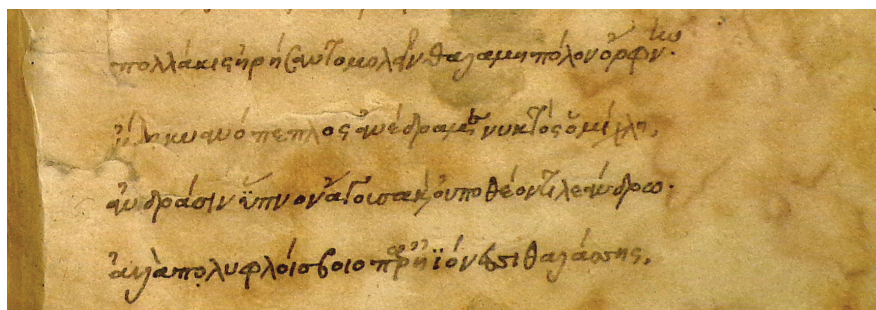 πολλάκις ἠρήσαντο μολεῖν θαλαμηπόλον ὄρφνην·
ἤδη κυανόπεπλος ἀνέδραμε νυκτὸς ὀμίχλη,
ἀνδράσιν ὕπνον ἄγουσα κ οὐ ποθέοντι λεάνδρω·
ἀλλὰ πολυφλοίσβοιο παρ ἠϊόνεσσι θαλάσσης,